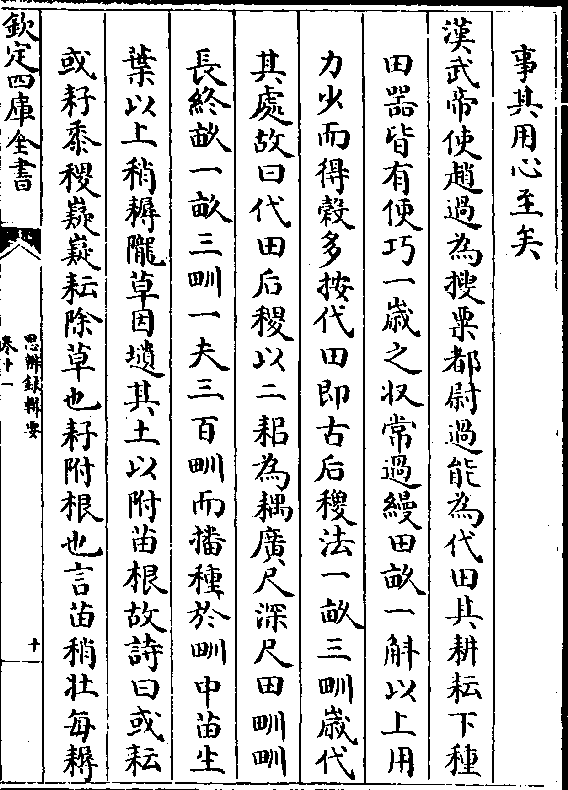 事其用心至矣
漢武帝使趙過為搜粟都尉過能為代田其耕耘下種
田器皆有便巧一歲之収常過縵田畝一斛以上用
力少而得穀多按代田即古后稷法一畝三甽歲代
其處故曰代田后稷以二耜為耦廣尺深尺田甽甽
長終畝一畝三甽一夫三百甽而播種於甽中苗生
葉以上稍耨隴草因壝其土以附苗根故詩曰或耘
或耔黍稷嶷嶷耘除草也耔附根也言苗稍壯每耨
欽定四庫全書
思辨録輯要
卷十一
十